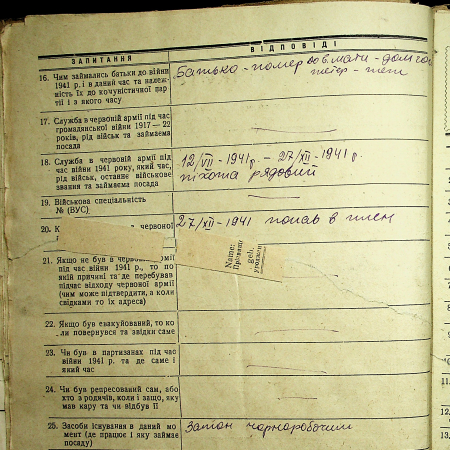 ЗАПИТАННЯ
ВІДПОВІДІ
16. Чим займались батьки до війни
1941 р. і в даний час та належ-
ність їх до комуністичної пар-
тії і з якого часу
Батько - помер мати -
17. Служба в червоній армії під час
громадянської війни 1917—22
років, рід військ та займаєма
посада
18. Служба в червоній армії під
час війни 1941 року, який час,
рід військ, останнє військове
звання та займаєма посада
12/VII - 1941 р. - 27/XII - 1941 р.
піхота рядовий
19. Військова спеціальність
№ (ВУС)
20. К в червоної
27/XII - 1941 попав в плен
Name:
Прізвище
geb.
уродженн
21. Якщо не був в червоній армії
під час війни 1941 р., то по
якій причині та де перебував
підчас відходу червоної армії
(чим може підтвердити, а коли
свідками то їх адреса)
22. Якщо був евакуйований, то ко-
ли повернувся та звідки саме
23. Чи був в партизанах під час
війни 1941 р. та де саме і
який час
24. Чи був репресований сам, або
хто з родичів, коли і защо, яку
мав кару та чи відбув її
25. Засоби існування в даний мо-
мент (де працює і яку займає
посаду)
чорноробочим
11.
12.
13.